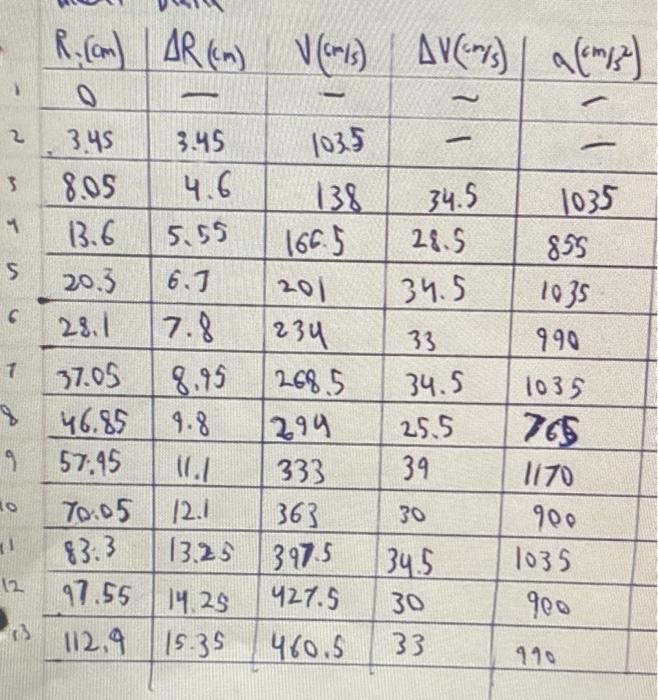 R.(cm) ΔR (cm) V (cm/s) ΔV(cm/s) a(cm/s²)
1 0 — — ~ —
2 3.45 3.45 103.5 — —
3 8.05 4.6 138 34.5 1035
4 13.6 5.55 166.5 28.5 855
5 20.3 6.7 201 34.5 1035
6 28.1 7.8 234 33 990
7 37.05 8.95 268.5 34.5 1035
8 46.85 9.8 294 25.5 765
9 57.95 11.1 333 39 1170
10 70.05 12.1 363 30 900
11 83.3 13.25 397.5 34.5 1035
12 97.55 14.25 427.5 30 900
13 112.9 15.35 460.5 33 990